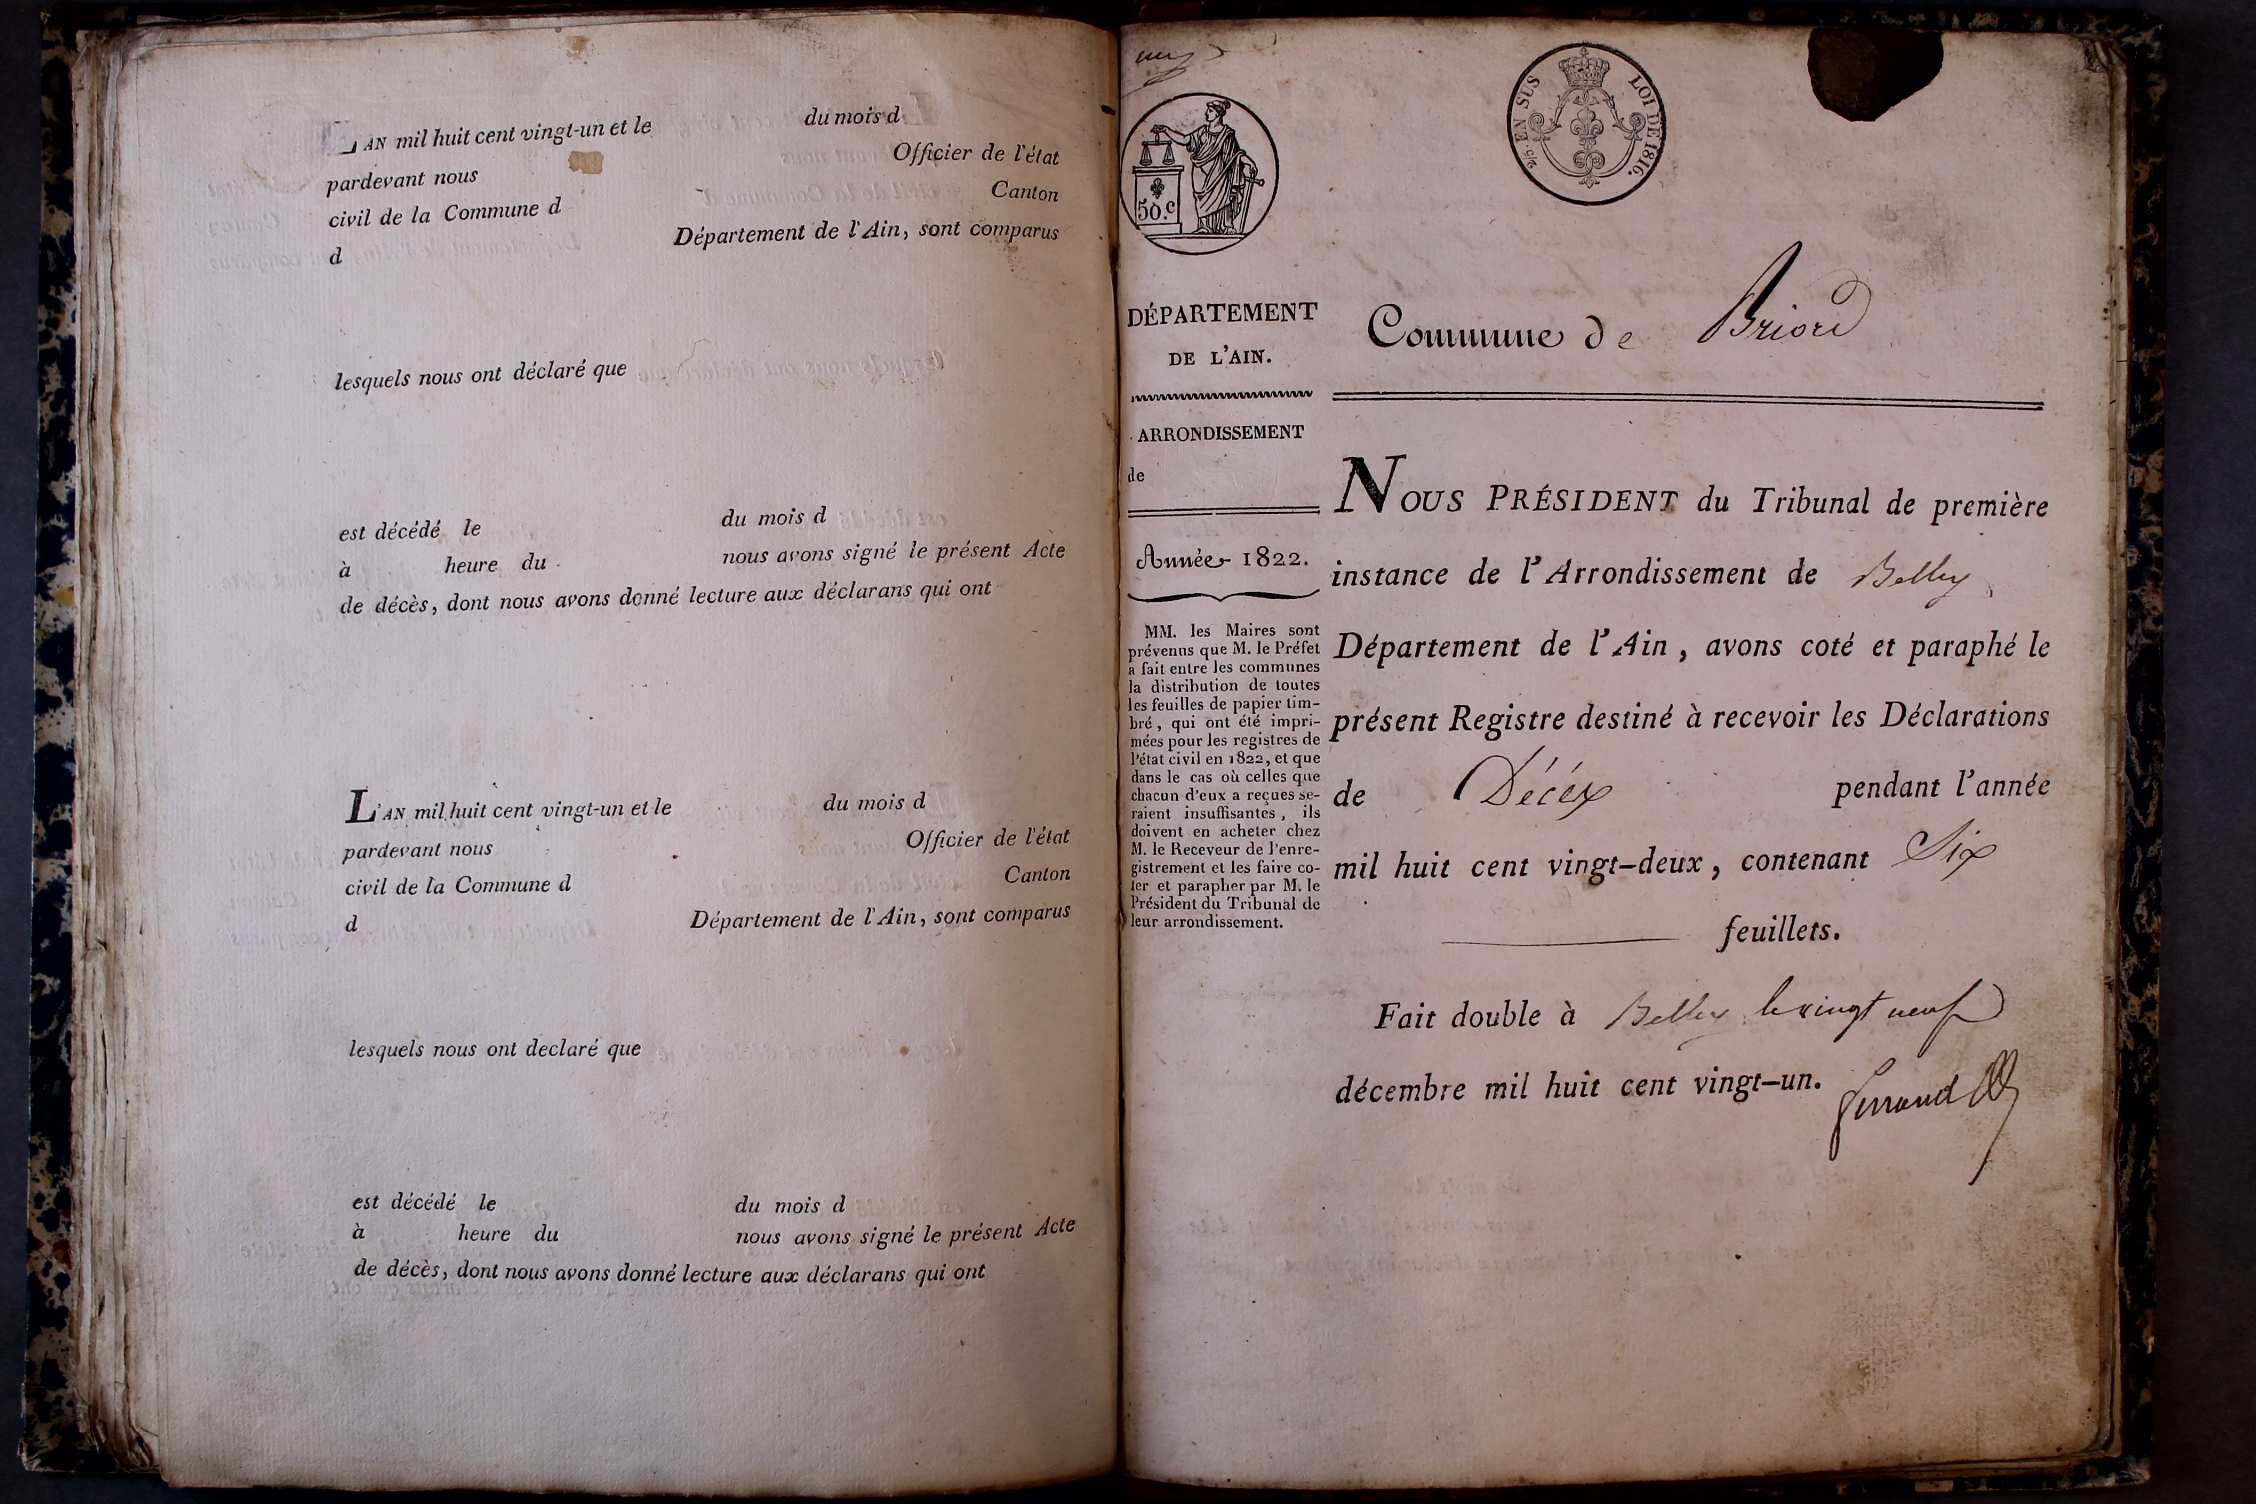 L'AN mil huit cent vingt-un et le du mois d
pardevant nous Officier de l'état
civil de la Commune d Canton
d Département de l'Ain, sont comparus
lesquels nous ont déclaré que
est décédé le du mois d
à heure du nous avons signé le présent Acte
de décès, dont nous avons donné lecture aux déclarans qui ont
L'AN mil huit cent vingt-un et le du mois d
pardevant nous Officier de l'état
civil de la Commune d Canton
d Département de l'Ain, sont comparus
lesquels nous ont declaré que
est décédé le du mois d
à heure du nous avons signé le présent Acte
de décès, dont nous avons donné lecture aux déclarans qui ont
50.c
EN SUS LOI DE 1816.
DÉPARTEMENT
DE L'AIN.
ARRONDISSEMENT
de
Année 1822.
MM. les Maires sont
prévenus que M. le Préfet
a fait entre les communes
la distribution de toutes
les feuilles de papier tim-
bré, qui ont été impri-
mées pour les registres de
l'état civil en 1822, et que
dans le cas où celles que
chacun d'eux a reçues se-
raient insuffisantes, ils
doivent en acheter chez
M. le Receveur de l'enre-
gistrement et les faire co-
ter et parapher par M. le
Président du Tribunal de
leur arrondissement.
Commune de Briord
NOUS PRÉSIDENT du Tribunal de première
instance de l'Arrondissement de Belley
Département de l'Ain, avons coté et paraphé le
présent Registre destiné à recevoir les Déclarations
de Décéx pendant l'année
mil huit cent vingt-deux, contenant Six
feuillets.
Fait double à Belley le vingt neuf
décembre mil huit cent vingt-un.